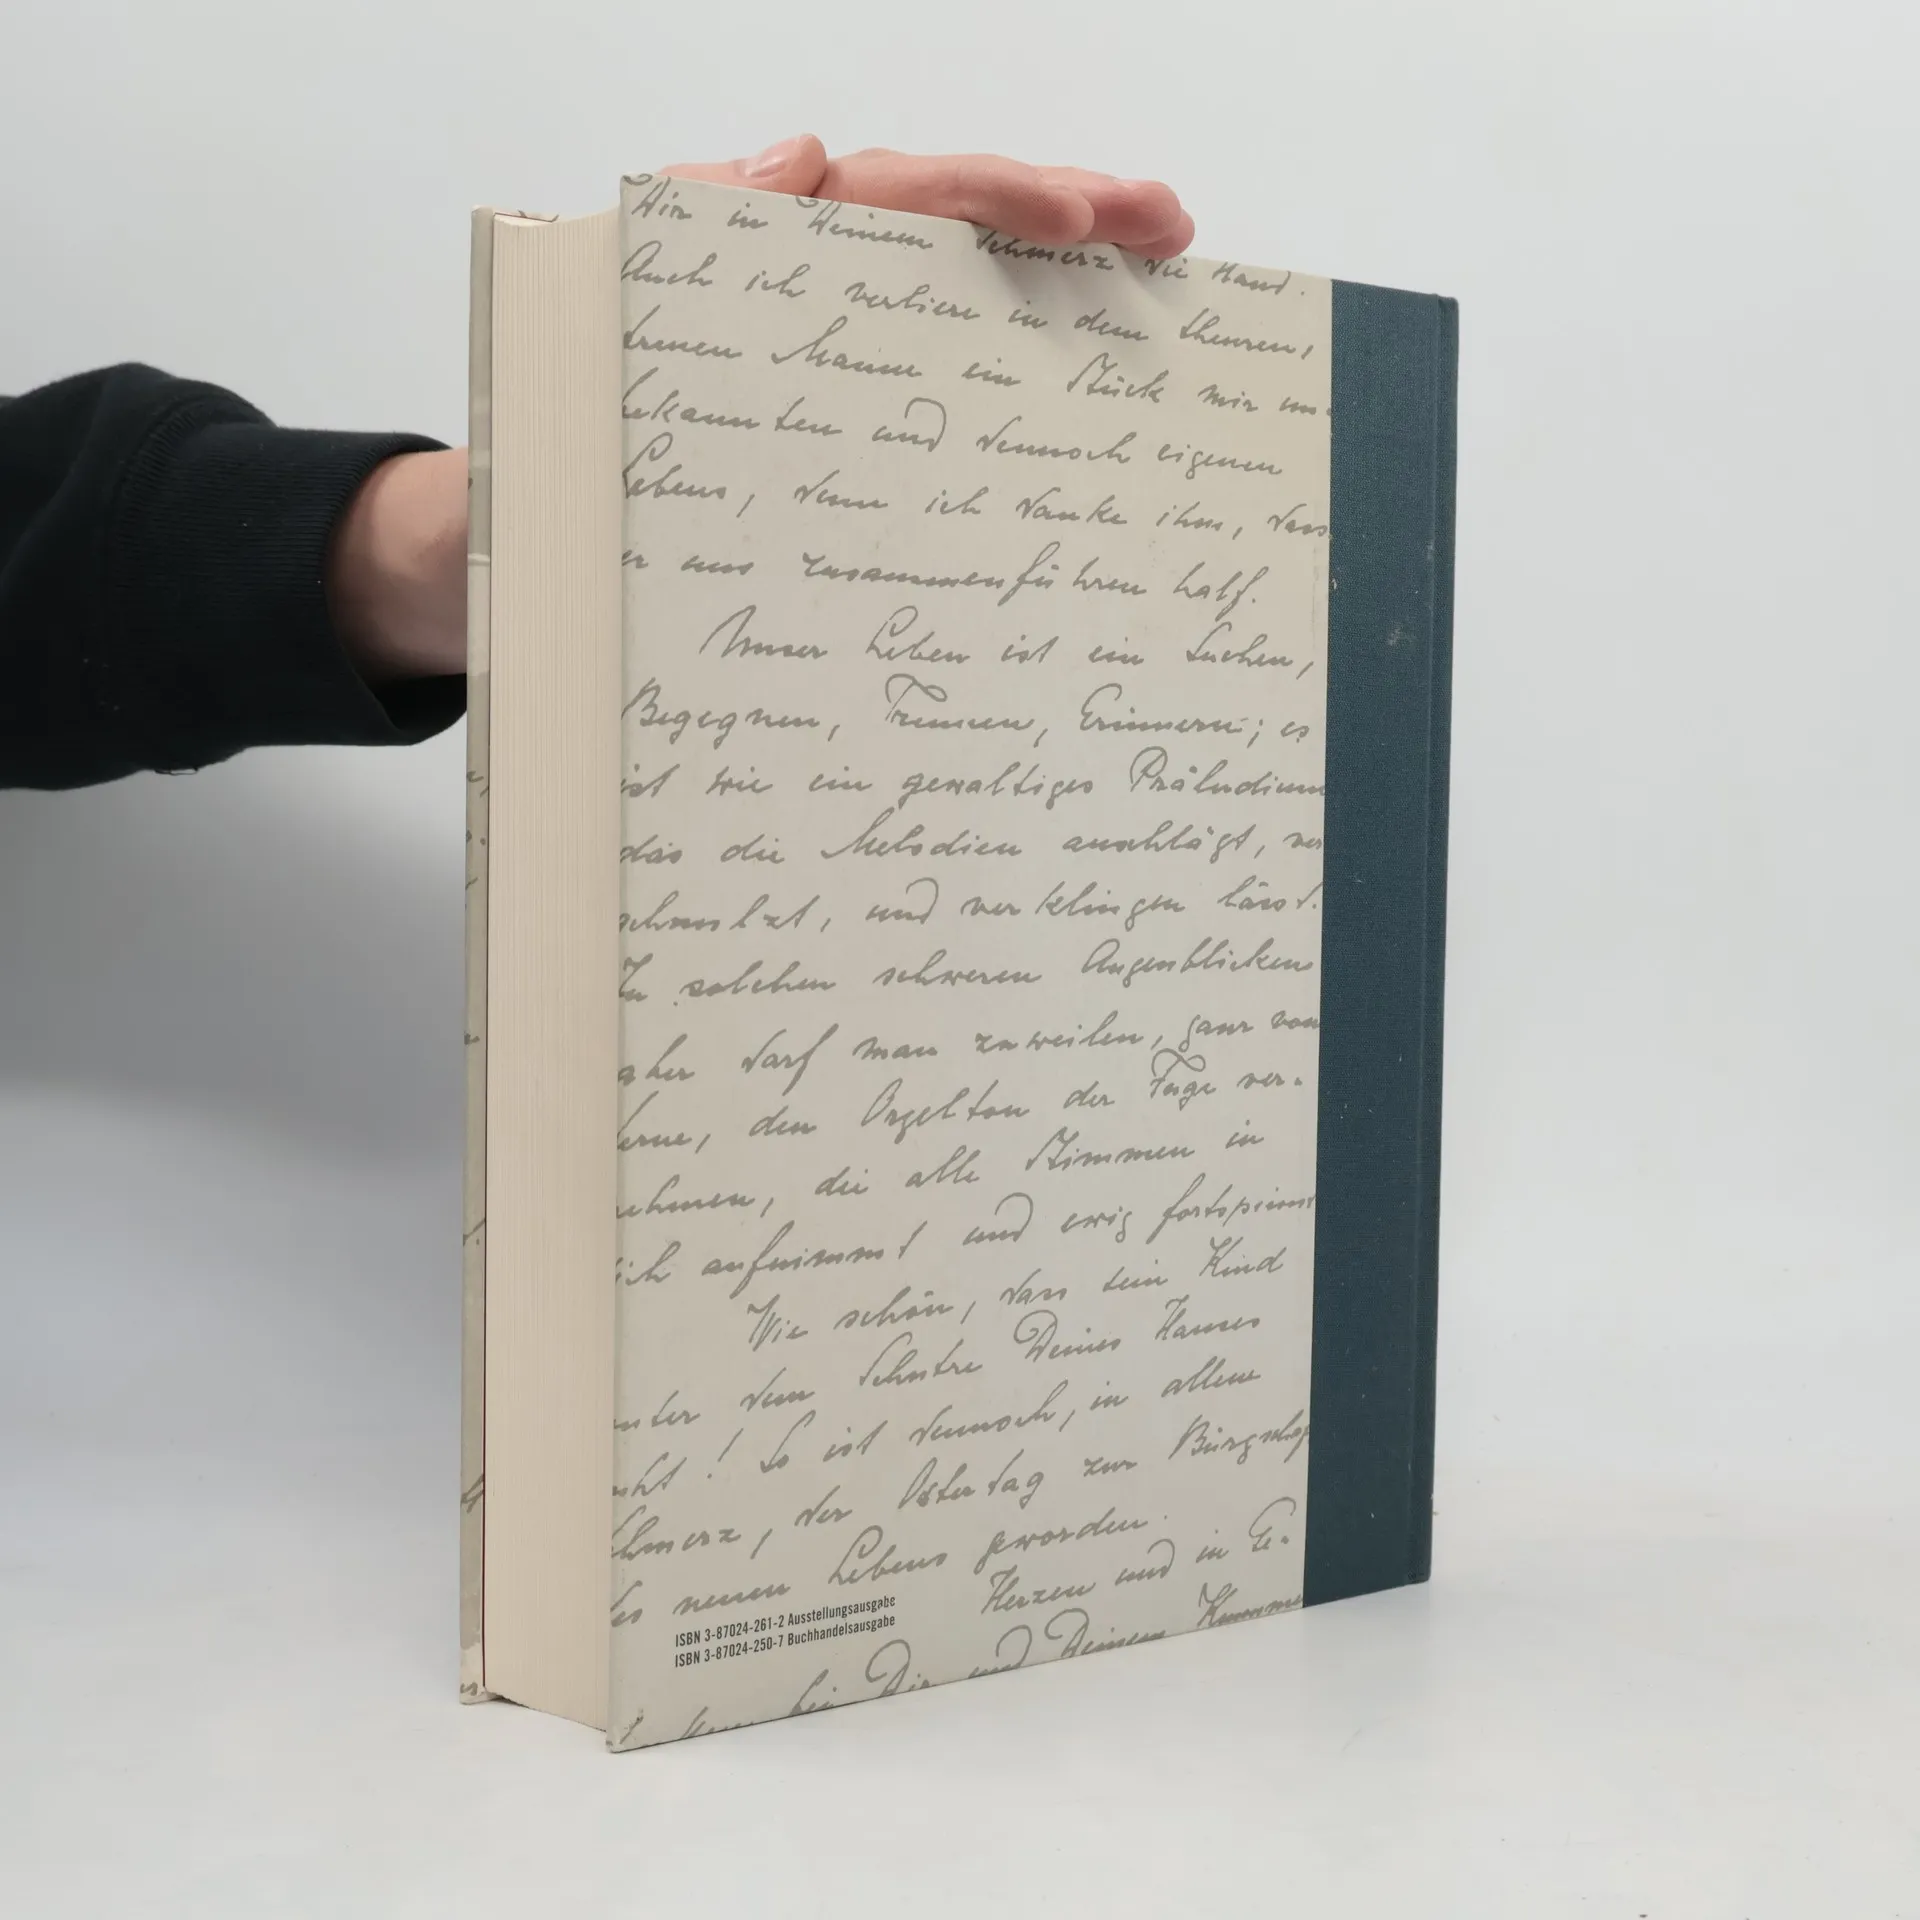 Dir in Deinem Schmerz die Hand.
Auch ich verliere in dem theuren,
treuen Manne ein Stück mir un-
bekannten und dennoch eigenen
Lebens, denn ich danke ihm, dass
er uns zusammenführen half.
Unser Leben ist ein Suchen,
Begegnen, Trennen, Erinnern; es
ist wie ein gewaltiges Präludium
das die Melodien anschlägt, ver
schmelzt, und verklingen lässt.
In solchen schweren Augenblicken
aber darf man zuweilen, ganz von
ferne, den Orgelton der Fuge ver-
nehmen, die alle Stimmen in
sich aufnimmt und ewig fortspinnt
Wie schön, dass sein Kind
unter dem Schutze Deines Hauses
! So ist dennoch, in allem
Schmerz, der Ostertag zur Bürgschaf
des neuen Lebens geworden.
Herzen und in Ge-
bei Dir und Deinem Kumme
ISBN 3-87024-261-2 Ausstellungsausgabe
ISBN 3-87024-250-7 Buchhandelsausgabe